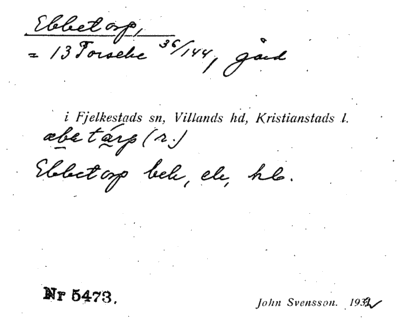 Ebbetorp,
= 13 Torsebe 36/144, gård
i Fjelkestads sn, Villands hd, Kristianstads l.
æbetårp (r.)
Ebbetorp bek, ek, hb.
Nr 5473.
John Svensson. 1932